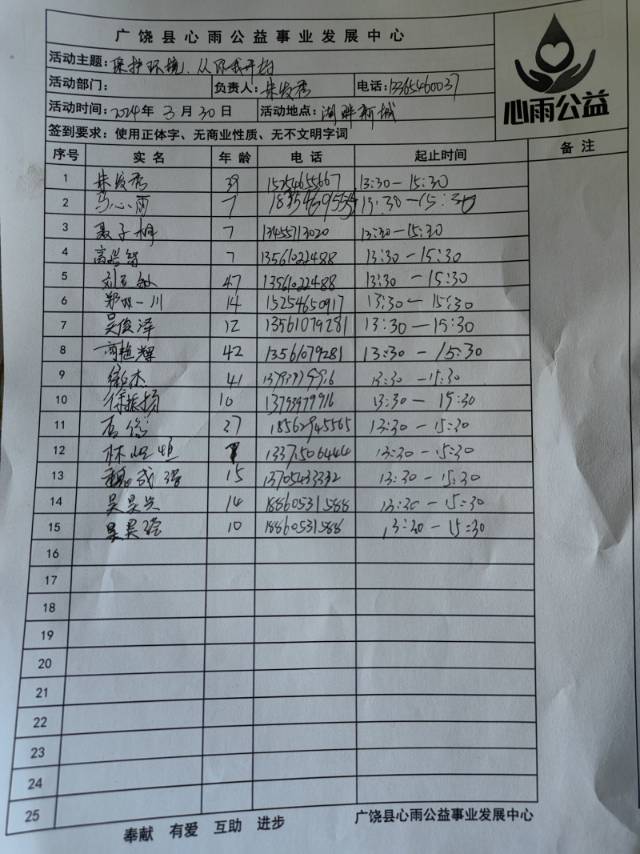 广饶县心雨公益事业发展中心
活动主题: 保护环境,从你我开始
活动部门: 负责人: 朱俊秀 电话: 13365460037
活动时间: 2024年3月30日 活动地点: 湖畔新城
签到要求: 使用正体字、无商业性质、无不文明字词
心雨公益
序号 实名 年龄 电话 起止时间 备注
1 朱俊秀 39 15254655667 13:30-15:30
2 马心雨 7 13:30-15:30
3 聂子桐 7 13455713020 13:30-15:30
4 7 13561022488 13:30-15:30
5 47 13561022488 13:30-15:30
6 郑一川 14 15254650917 13:30-15:30
7 吴俊泽 12 13561079281 13:30-15:30
8 42 13561079281 13:30-15:30
9 徐杰 41 13:30-15:30
10 徐振扬 10 13793979916 13:30-15:30
11 27 18562945565 13:30-15:30
12 13375066444 13:30-15:30
13 15 13705433332 13:30-15:30
14 吴昊 14 18860531588 13:30-15:30
15 吴昊 10 18860531588 13:30-15:30
16
17
18
19
20
21
22
23
24
25
奉献 有爱 互助 进步 广饶县心雨公益事业发展中心